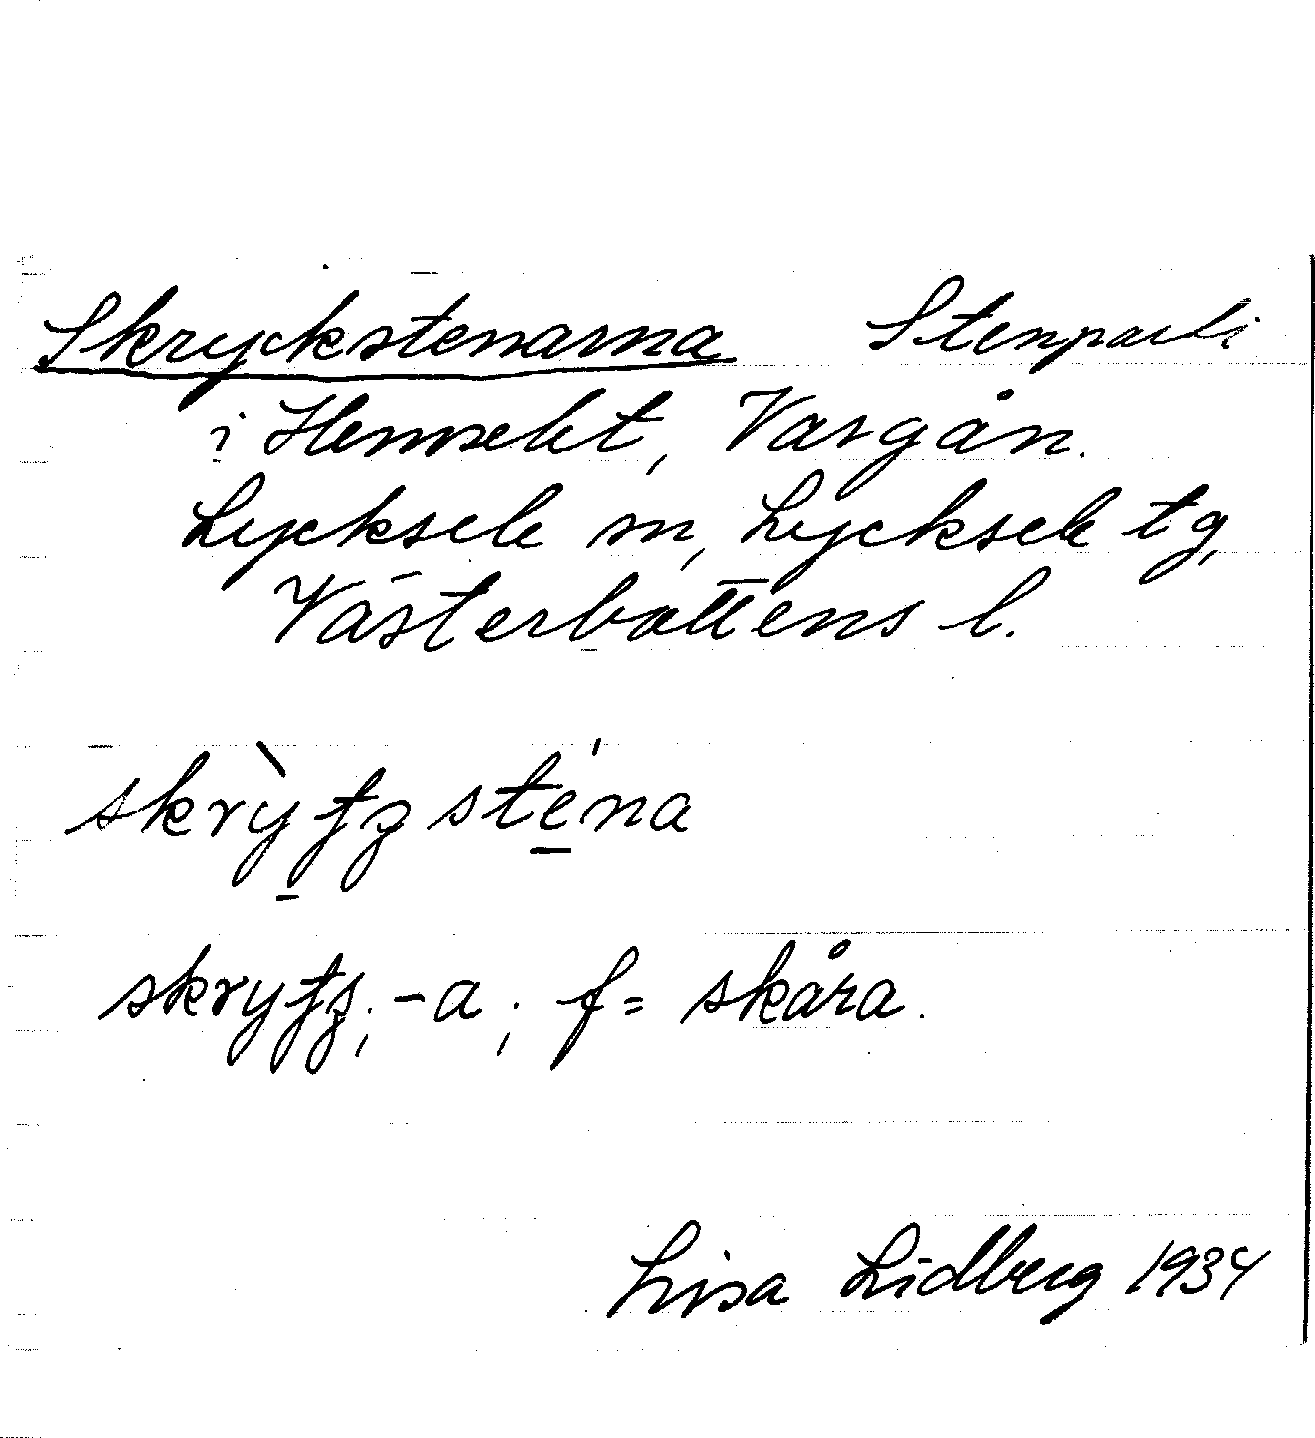 Skryckstenarna Stenparti
i Hemselet, Vargån.
Lycksele sn, Lycksele tg,
Västerbottens l.
skry̠ʈʂste̠na
skryʈʂ; -a; f = skåra.
Lisa Lidberg 1934